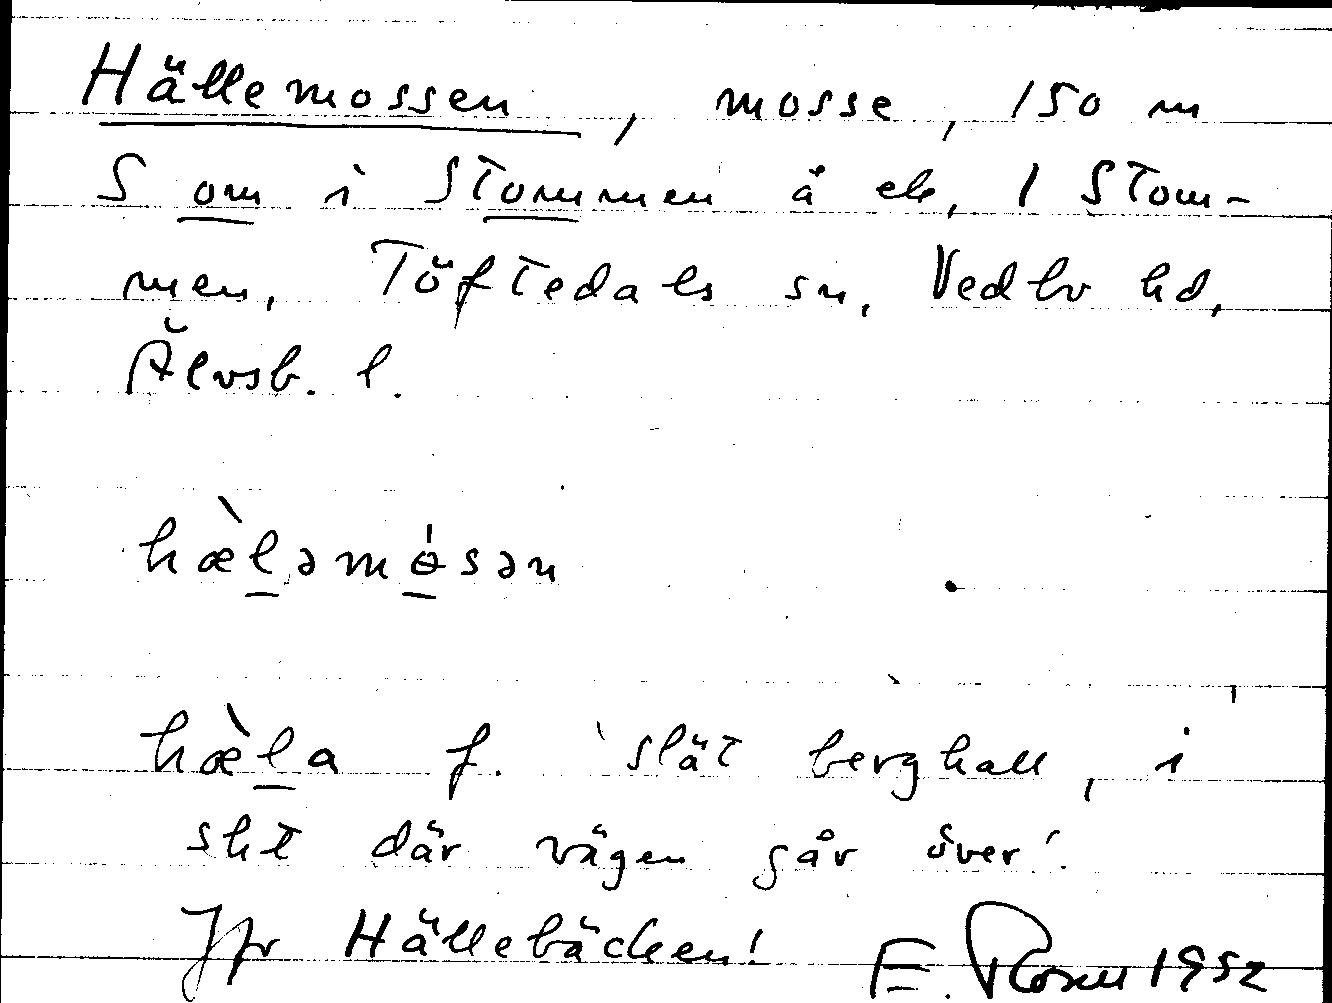 Hällemossen, mosse, 150 m
S om i Stommen å ek, 1 Stom-
men, Töftedals sn, Vedbo hd,
Älvsb. l.
hæ̀l̠əmɵ̠́sən
hæ̀l̠a f. 'slät berghäll, i
sht där vägen går över'.
Jfr Hällebäcken! E. Rosell 1952